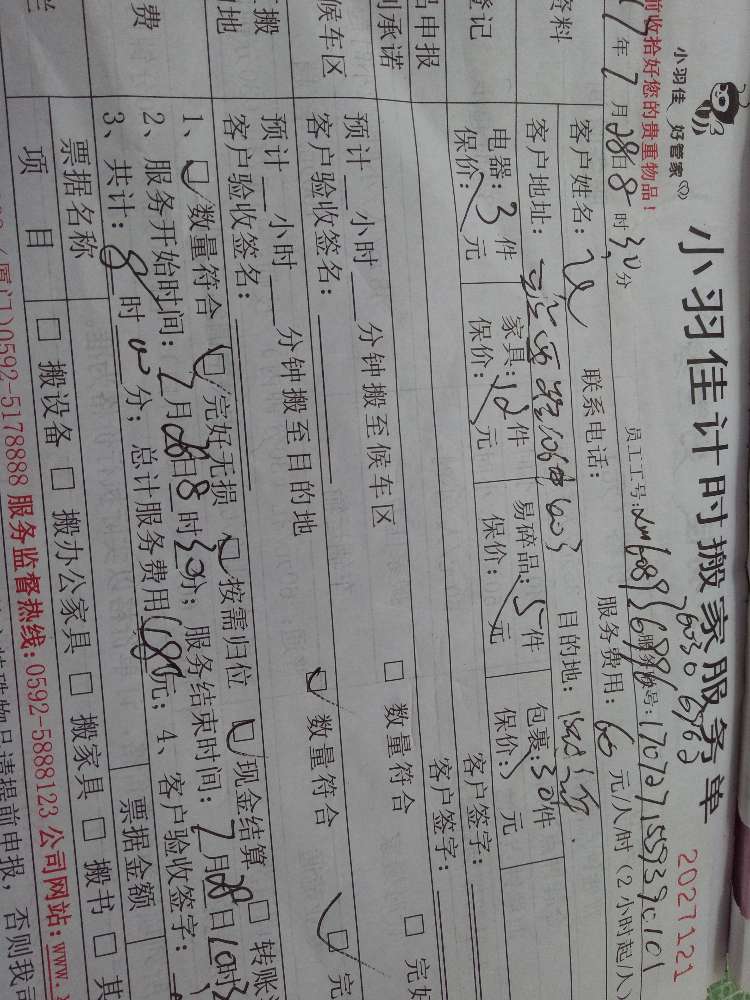 小羽佳 好管家
小羽佳计时搬家服务单
2027121
前收拾好您的贵重物品!
员工工号:
服务账号:170727155939c101
17年7月28日8时30分
资料
客户姓名:
联系电话:
服务费用:60元/人/时(2小时起/人
客户地址:
目的地:
登记
电器:3件
家具:12件
易碎品:5件
包裹:30件
保价: 元
保价: 元
保价: 元
保价: 元
品申报
客户签字:
承诺
客户签字:
候车区
预计 小时 分钟搬至候车区
数量符合
完好
客户验收签名:
搬
地
预计 小时 分钟搬至目的地
数量符合
完
客户验收签名:
费
1、 数量符合 完好无损 按需归位 现金结算 转账
2、服务开始时间:7月28日8时30分; 服务结束时间:7月28日10时3
3、共计:8时0分; 总计服务费用180元; 4、客户验收签字:
票据名称
票据金额
项 目
搬设备 搬办公家具 搬家具 搬书 其
(厦门)0592-5178888 服务监督热线:0592-5888123 公司网站:www.
特殊物品请提前申报, 否则我司